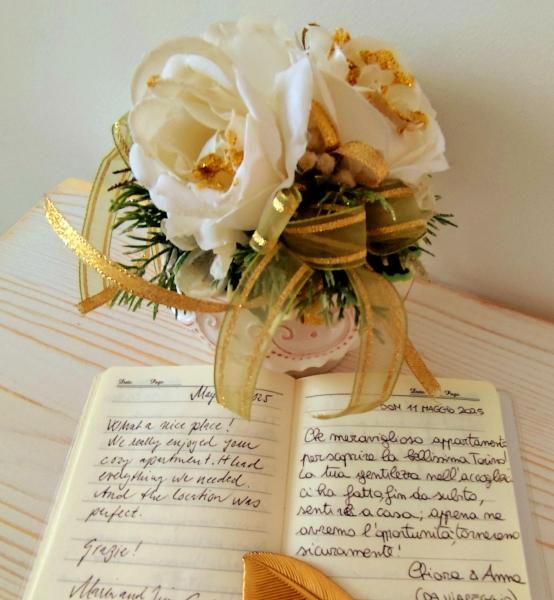 Date Page
May 2025
What a nice place!
We really enjoyed your
cozy apartment. It had
everything we needed.
And the location was
perfect.
Grazie!
Maria and
Date Page
DOM 11 MAGGIO 2025
Che meraviglioso appartamento
per scoprire la bellissima Torino!
La tua gentilezza nell'accoglierci
ci ha fatto fin da subito,
sentire a casa; appena ne
avremo l'opportunità, torneremo
sicuramente!
Chiara & Anna
(DA VIAREGGIO)